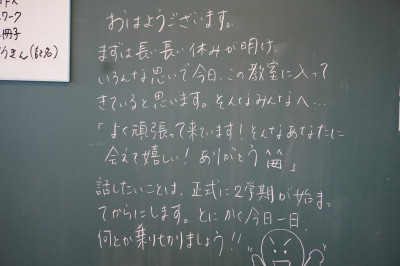 ワーク
冊子
きん(記名)
おはようございます。
まずは長い長い休みが明け、
いろんな思いで今日、この教室に入って
きていると思います。そんなみんなへ…
「よく頑張って来ています!そんなあなたに
会えて嬉しい!ありがとう」
話したいことは、正式に2学期が始まっ
てからにします。とにかく今日一日、
何とか乗りきりましょう!!